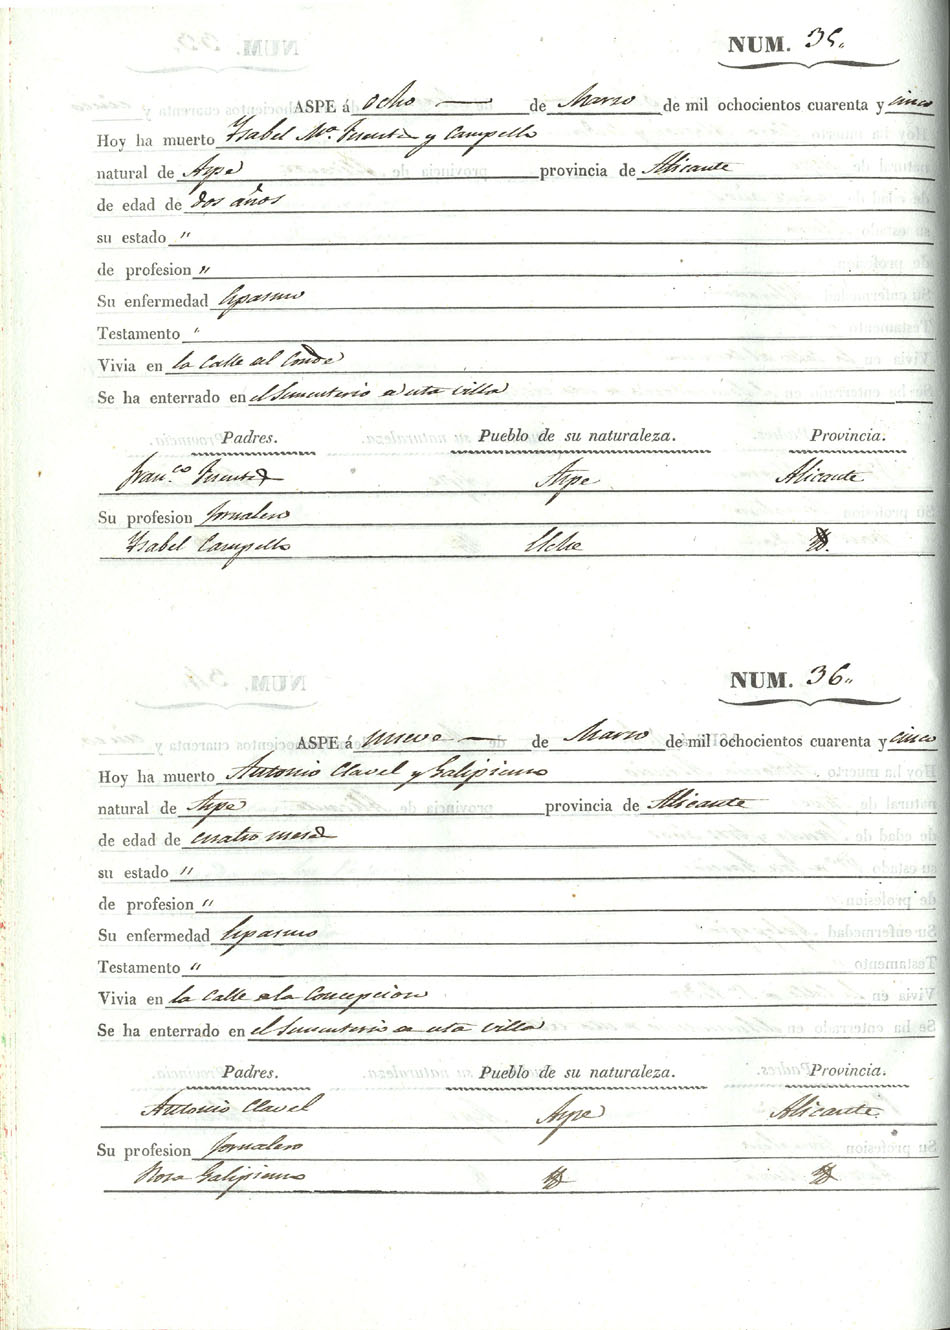 NUM. 35.
ASPE á ocho de Marzo de mil ochocientos cuarenta y cinco
Hoy ha muerto Ysabel Mª. Fuentes y Campello
natural de Aspe provincia de Alicante
de edad de dos años
su estado "
de profesion "
Su enfermedad Espasmo
Testamento "
Vivia en la Calle del Conde
Se ha enterrado en el Sementerio de esta Villa
Padres. Pueblo de su naturaleza. Provincia.
Fran.co Fuentes Aspe Alicante
Su profesion Jornalero
Ysabel Campello Elche
NUM. 36.
ASPE á nueve de Marzo de mil ochocientos cuarenta y cinco
Hoy ha muerto Antonio Clavel y Galipienso
natural de Aspe provincia de Alicante
de edad de cuatro meses
su estado "
de profesion "
Su enfermedad Espasmo
Testamento "
Vivia en la Calle de la Concepcion
Se ha enterrado en el Sementerio de esta Villa
Padres. Pueblo de su naturaleza. Provincia.
Antonio Clavel Aspe Alicante.
Su profesion Jornalero
Rosa Galipienso